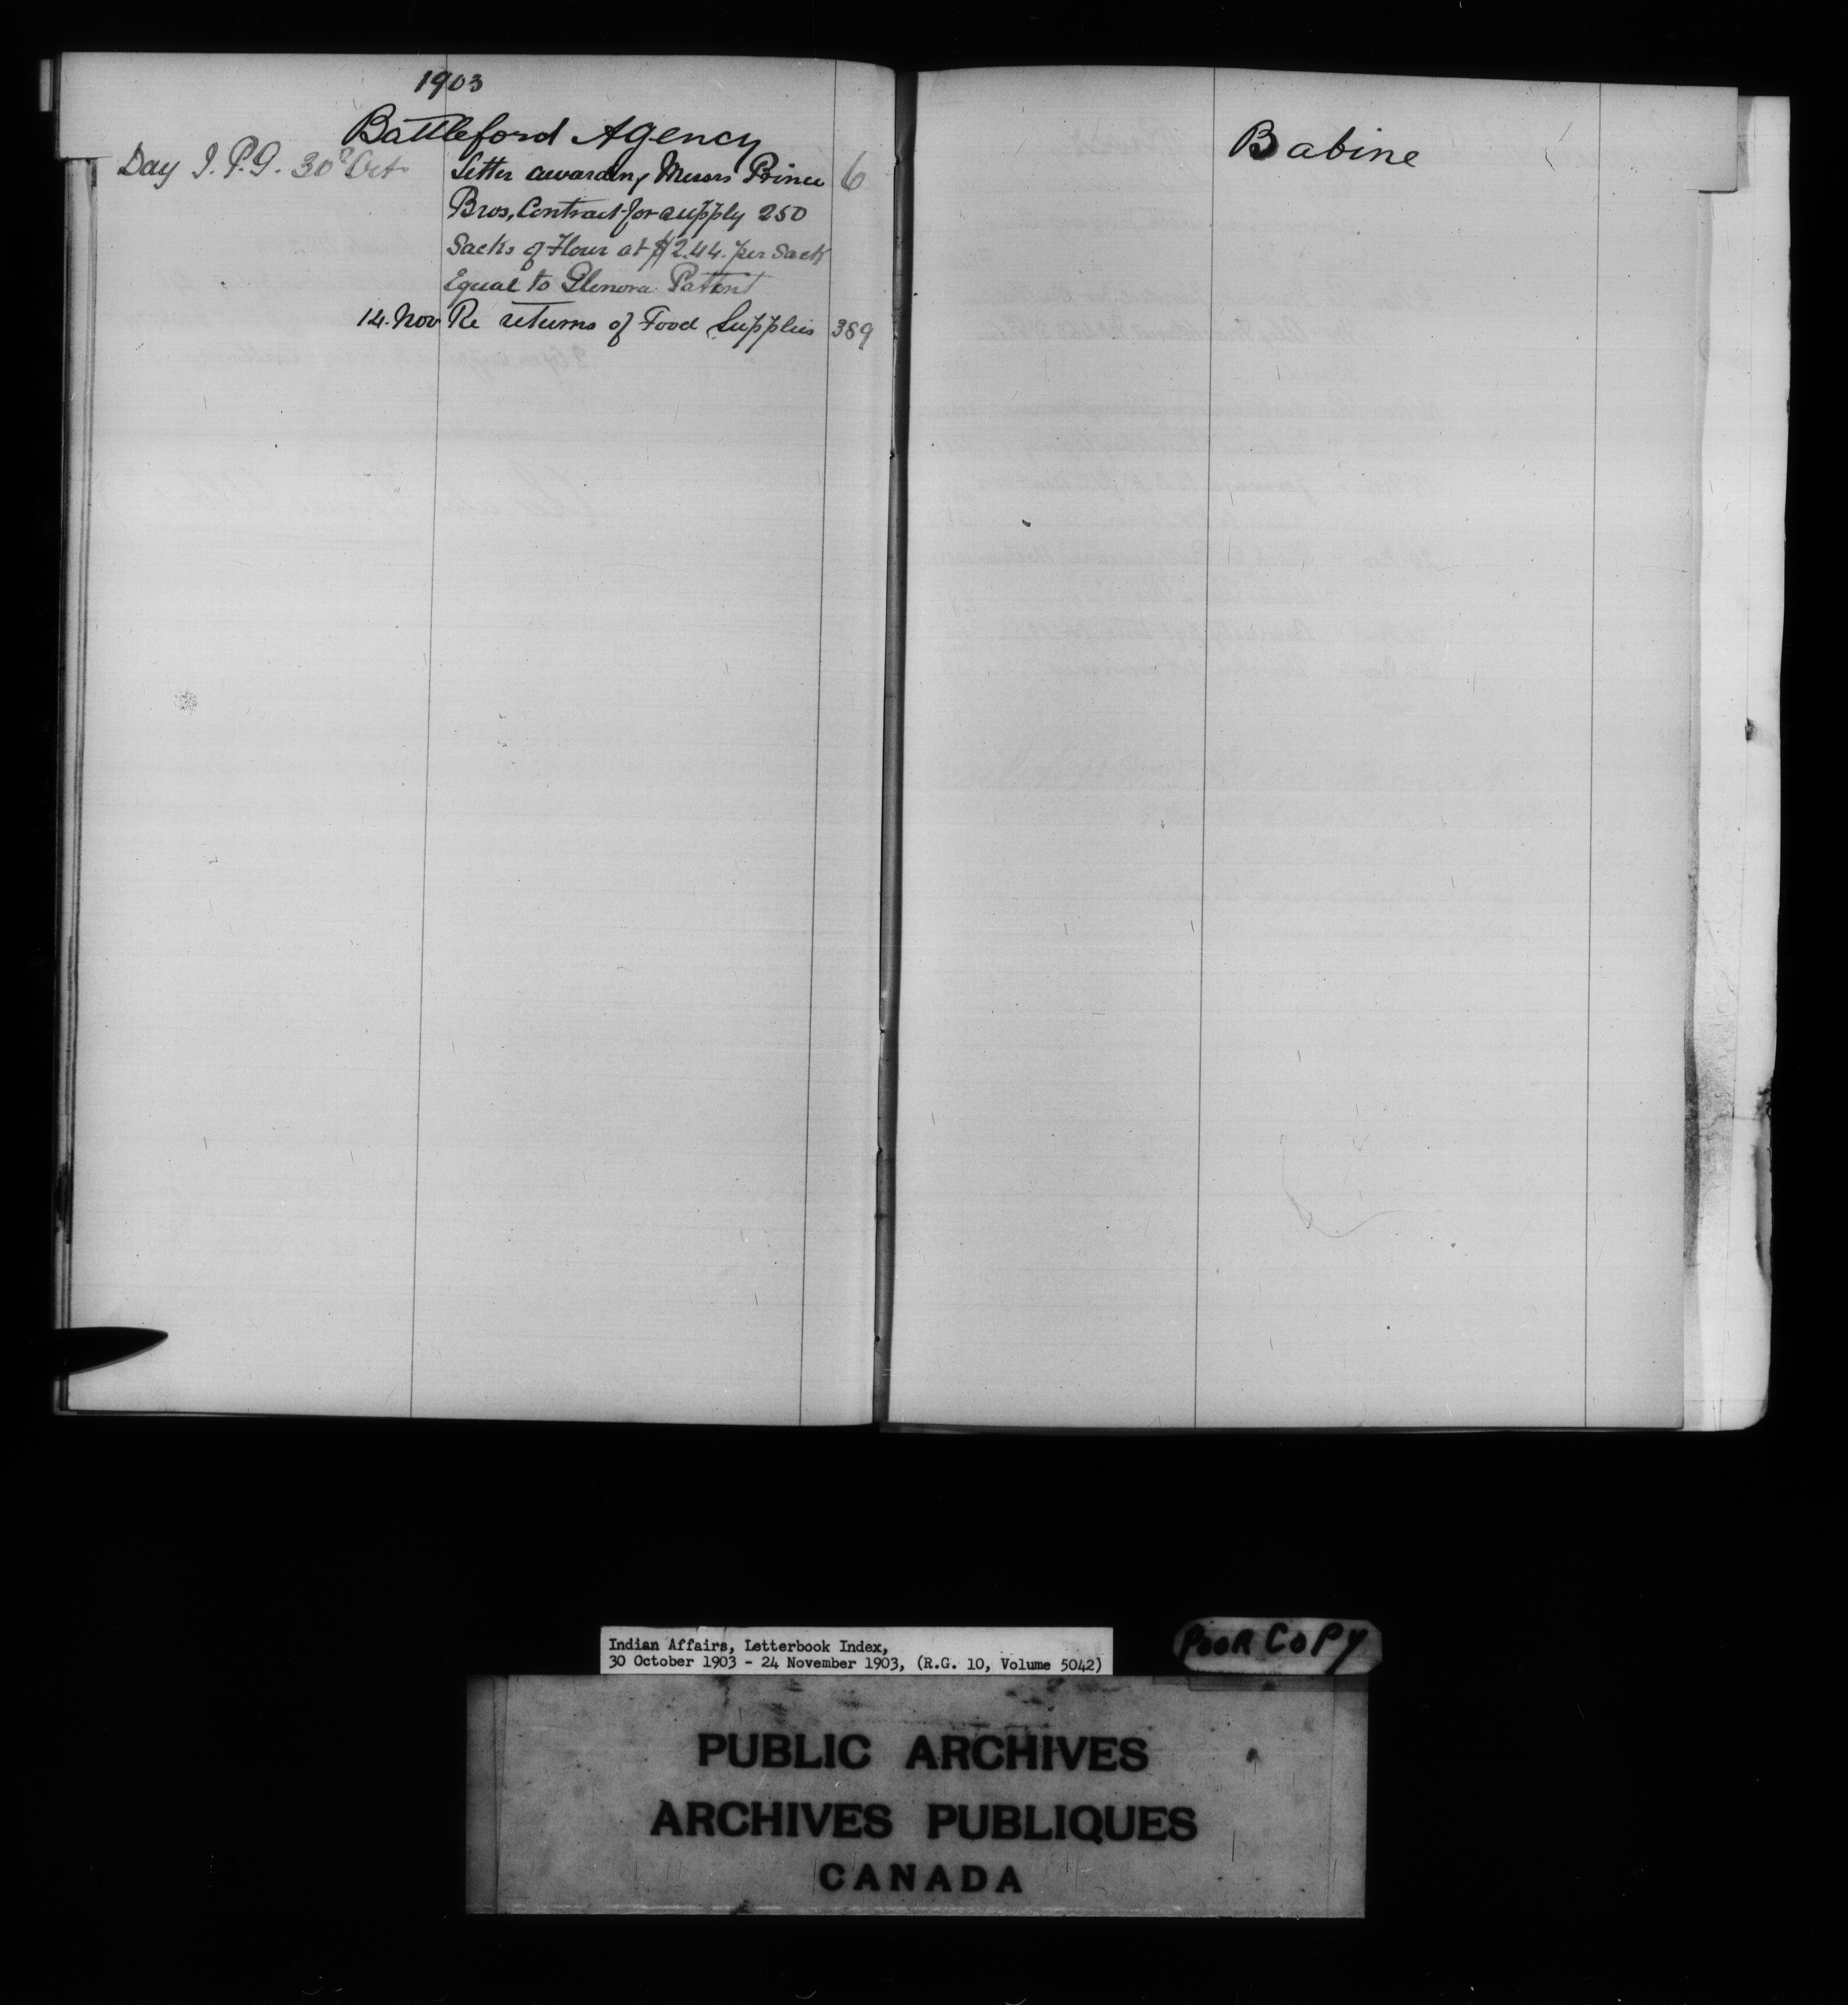 1903
Battleford Agency
Day J. P. G. 30 Oct Letter awarding Messrs Prince 6
Bros, Contract for supply 250
Sacks of Flour at $2.44. per Sack
Equal to Glenora Patent
14. Nov Re returns of Food Supplies 389
Babine
Indian Affairs, Letterbook Index,
30 October 1903 - 24 November 1903, (R.G. 10, Volume 5042)
POOR COPY
PUBLIC ARCHIVES
ARCHIVES PUBLIQUES
CANADA